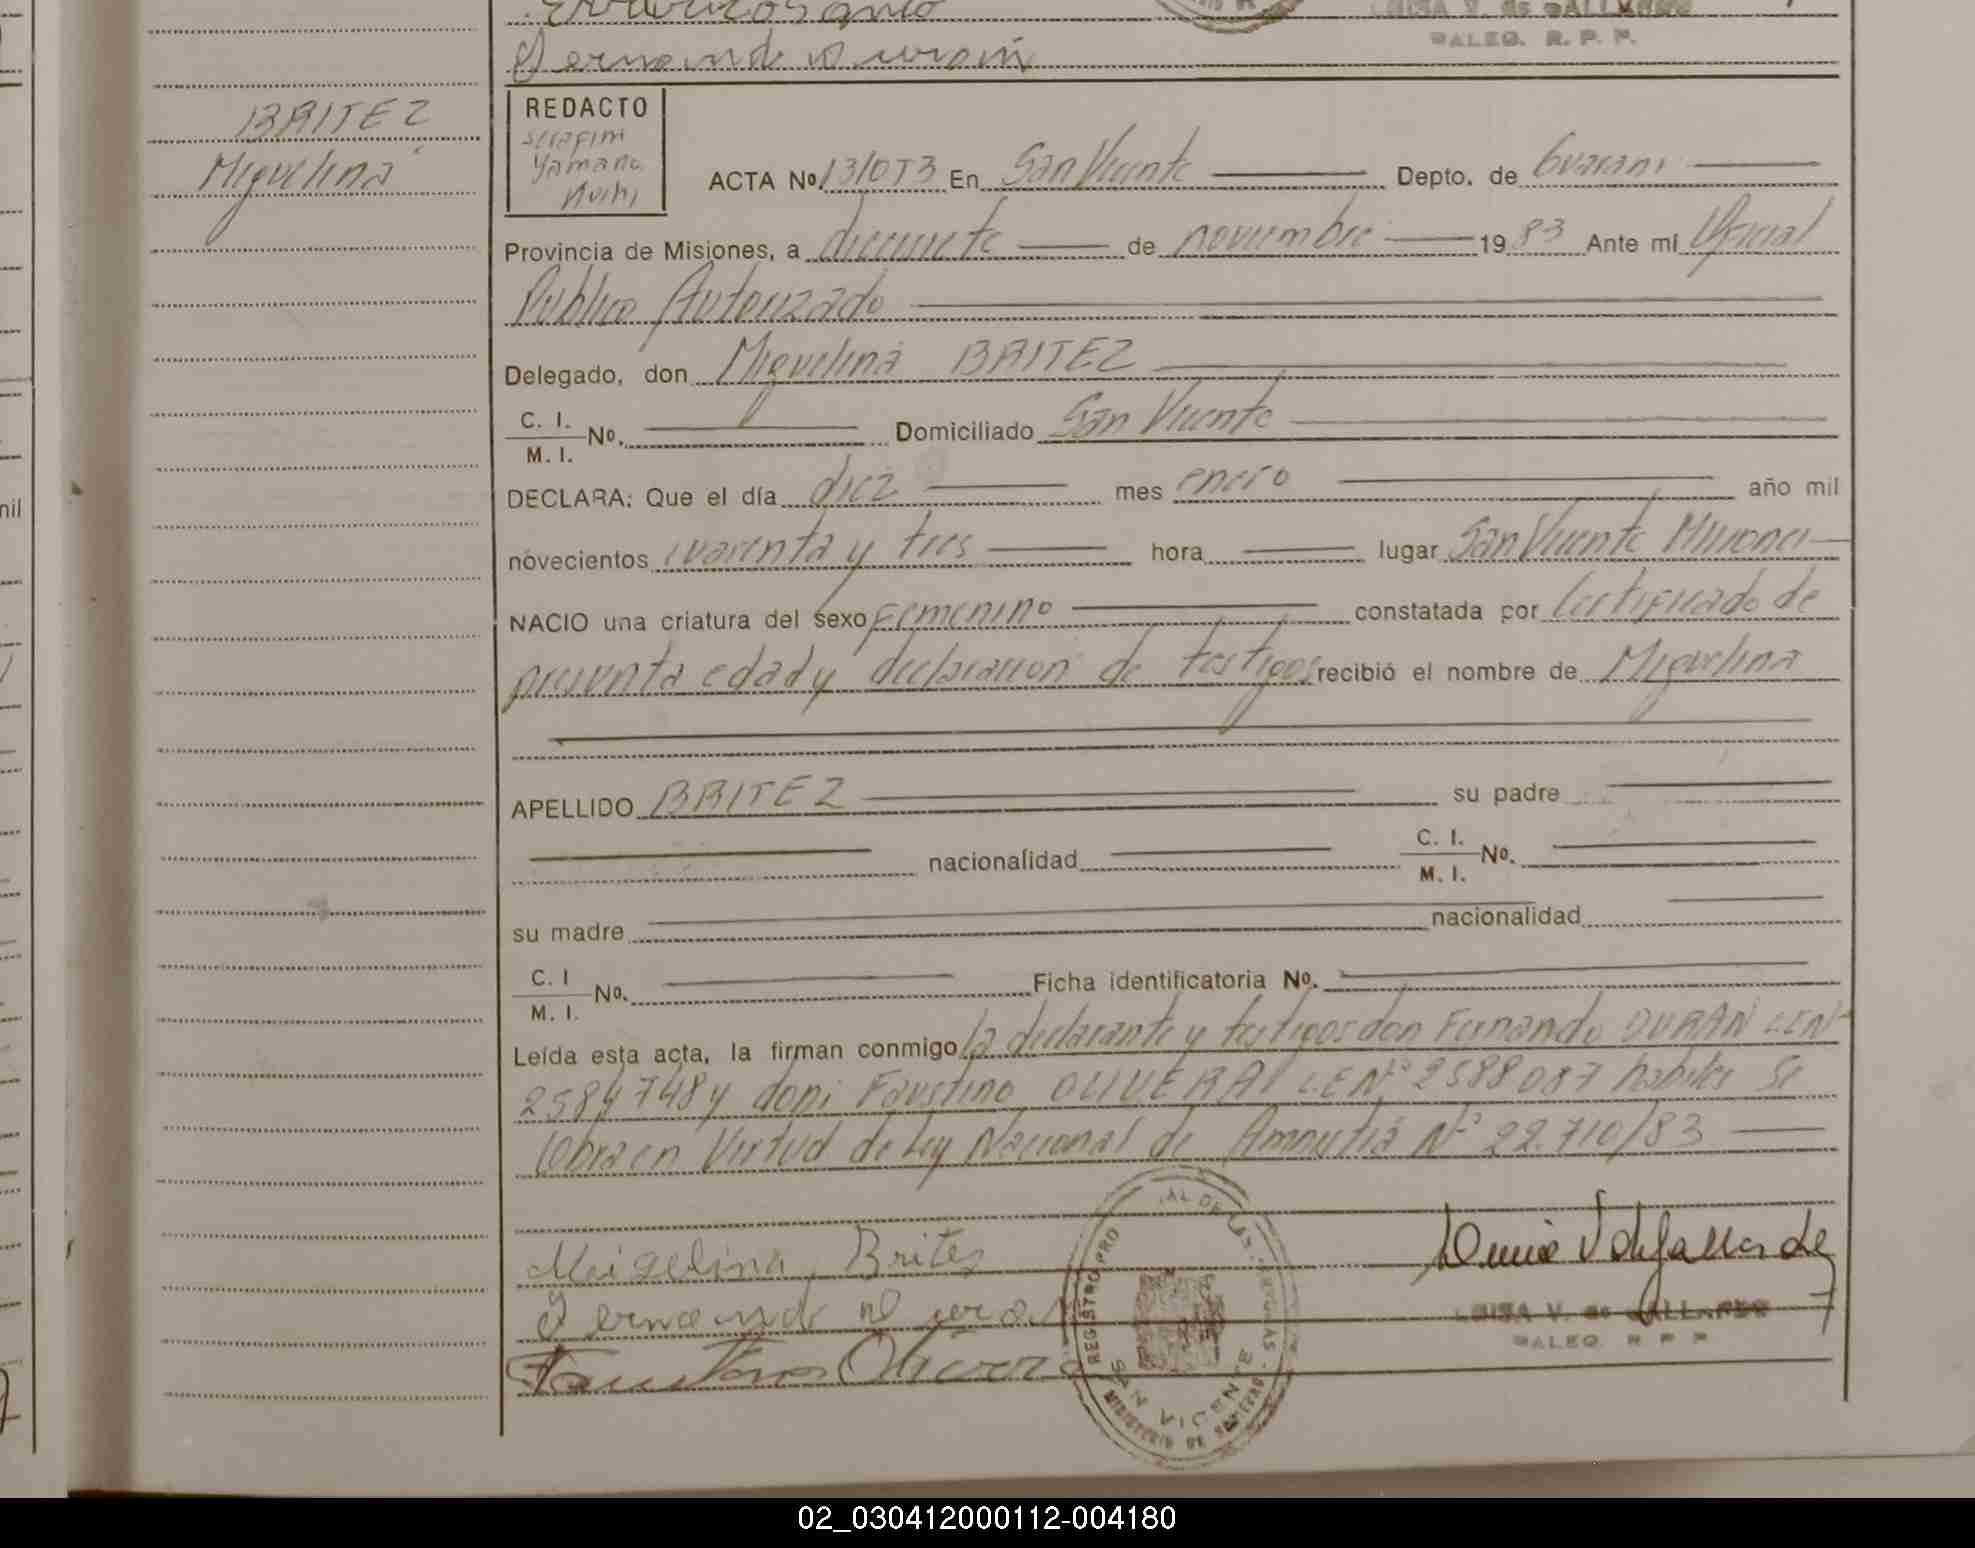 Fernando Duran
BRITEZ
Miguelina
REDACTO
Serafim
Yamana
ACTA Nº 13/0T3 En San Vicente Depto. de Guarani
Provincia de Misiones, a diecisiete de noviembre 1983 Ante mí Oficial
Publico Autorizado
Delegado, don Miguelina BRITEZ
C. I.
M. I. Nº. Domiciliado San Vicente
DECLARA: Que el día diez mes enero año mil
novecientos cuarenta y tres hora lugar San Vicente Misiones
NACIO una criatura del sexo Femenino constatada por Certificado de
presunta edad y declaracion de testigos recibió el nombre de Miguelina
APELLIDO BRITEZ su padre
nacionalidad C. I.
M. I. Nº.
su madre nacionalidad
C. I
M. I. Nº. Ficha identificatoria Nº.
Leída esta acta, la firman conmigo la declarante y testigos don Fernando DURAN LEN°
2584748 y don: Faustino OLIVERA LEN° 2588087 habiles Se
labra en Virtud de Ley Nacional de Amnistia N° 22.710/83
Migelina Brites
Fernando Duran
Faustino Olivera
REGISTRO PRO AL DE LAS PERSONAS
SAN VICENTE
MINISTERIO DE GOBIERNO
LUISA V. de GALLARDO
DALEG. R. P. P.
02_030412000112-004180